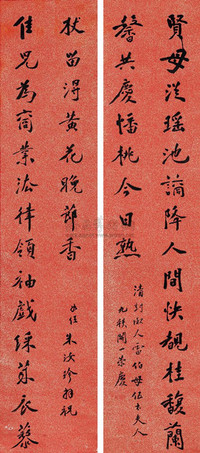 賢母從瑤池謫降人間快覩桂馥蘭
馨共慶蟠桃今日熟
清封恭人雷伯母伍太夫人
九秩開一榮慶
佳兒為商業法律領袖戲綵萊衣養
杖留得黃花晚節香
朱汝珍拜祝